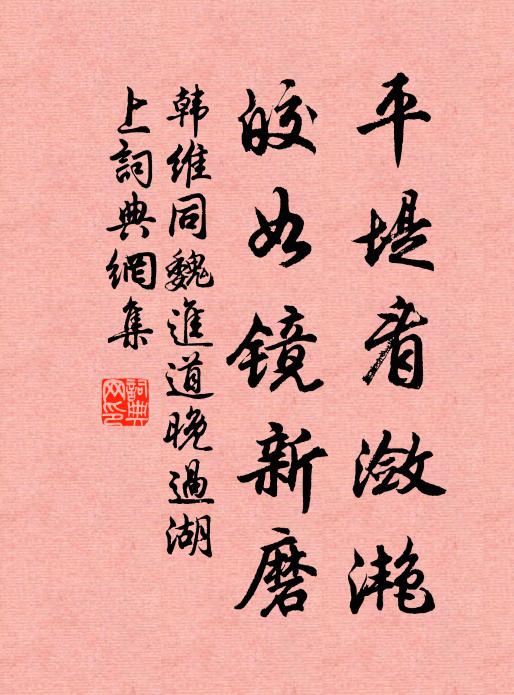 平堤看潋滟
皎如镜新磨
韩维同魏進道晚過湖
上詞典網集
詞典网印